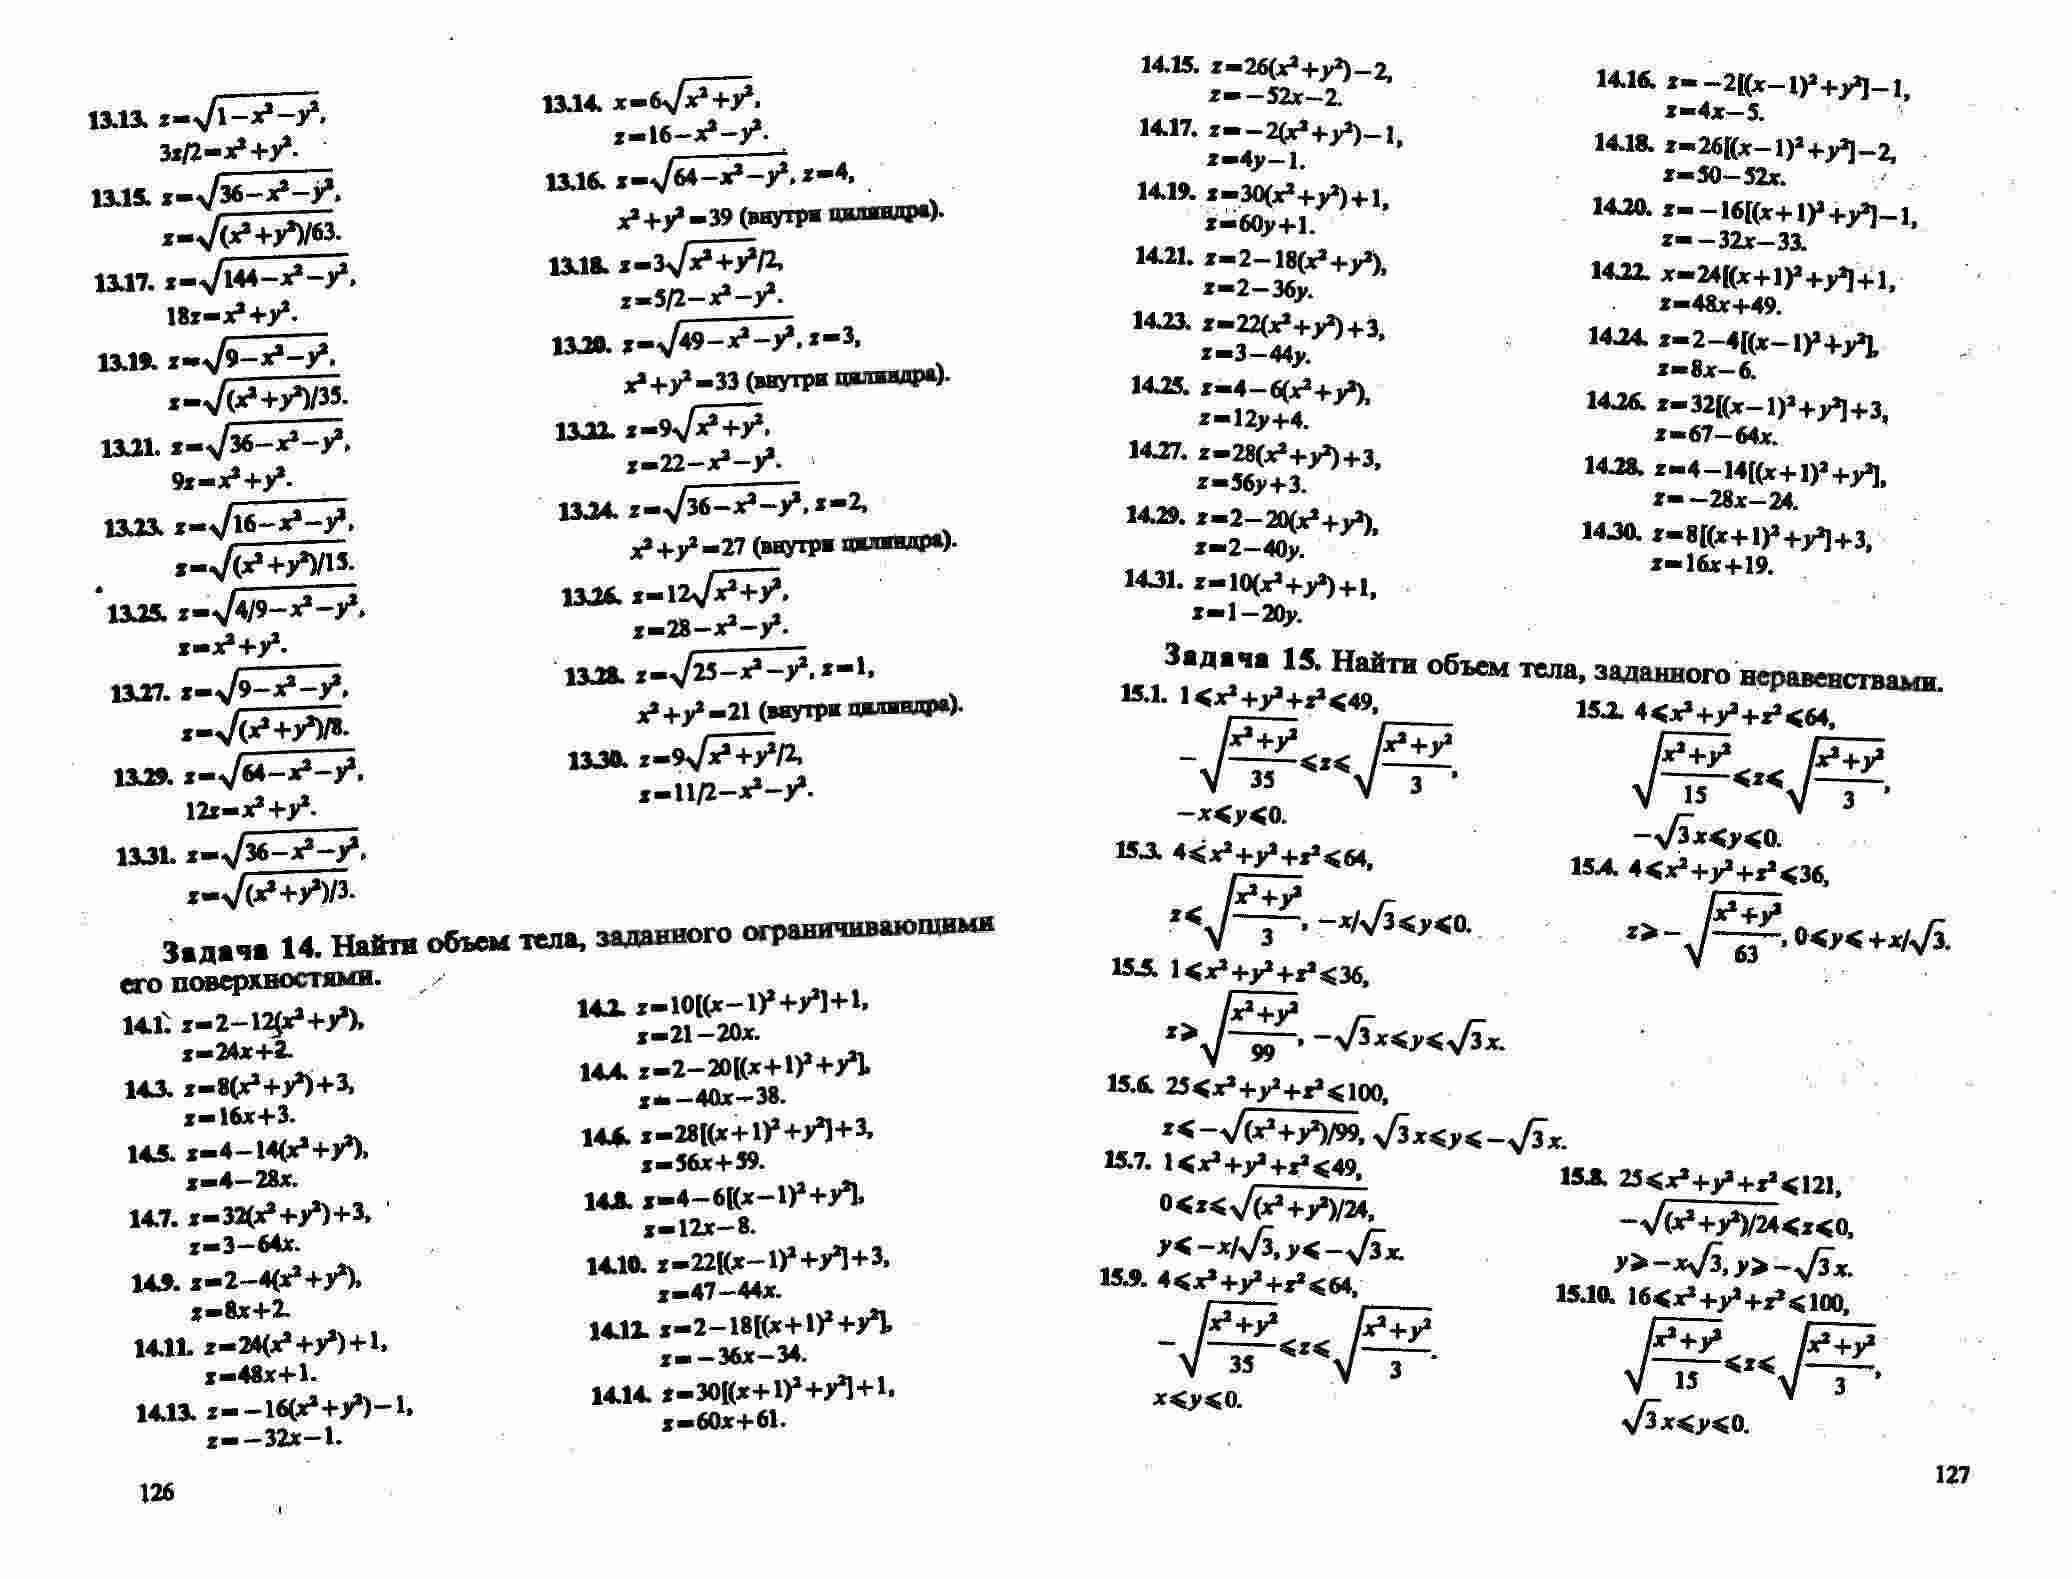 13.13. z=√1−x²−y²,
3z/2=x²+y².
13.15. z=√36−x²−y²,
z=√(x²+y²)/63.
13.17. z=√144−x²−y²,
18z=x²+y².
13.19. z=√9−x²−y²,
z=√(x²+y²)/35.
13.21. z=√36−x²−y²,
9z=x²+y².
13.23. z=√16−x²−y²,
z=√(x²+y²)/15.
13.25. z=√4/9−x²−y²,
z=x²+y².
13.27. z=√9−x²−y²,
z=√(x²+y²)/8.
13.29. z=√64−x²−y²,
12z=x²+y².
13.31. z=√36−x²−y²,
z=√(x²+y²)/3.
13.14. x=6√x²+y²,
z=16−x²−y².
13.16. z=√64−x²−y², z=4,
x²+y²=39 (внутри цилиндра).
13.18. z=3√x²+y²/2,
z=5/2−x²−y².
13.20. z=√49−x²−y², z=3,
x²+y²=33 (внутри цилиндра).
13.22. z=9√x²+y²,
z=22−x²−y².
13.24. z=√36−x²−y², z=2,
x²+y²=27 (внутри цилиндра).
13.26. z=12√x²+y²,
z=28−x²−y².
13.28. z=√25−x²−y², z=1,
x²+y²=21 (внутри цилиндра).
13.30. z=9√x²+y²/2,
z=11/2−x²−y².
Задача 14. Найти объем тела, заданного ограничивающими
его поверхностями.
14.1. z=2−12(x²+y²),
z=24x+2.
14.3. z=8(x²+y²)+3,
z=16x+3.
14.5. z=4−14(x²+y²),
z=4−28x.
14.7. z=32(x²+y²)+3,
z=3−64x.
14.9. z=2−4(x²+y²),
z=8x+2.
14.11. z=24(x²+y²)+1,
z=48x+1.
14.13. z=−16(x²+y²)−1,
z=−32x−1.
14.2. z=10[(x−1)²+y²]+1,
z=21−20x.
14.4. z=2−20[(x+1)²+y²],
z=−40x−38.
14.6. z=28[(x+1)²+y²]+3,
z=56x+59.
14.8. z=4−6[(x−1)²+y²],
z=12x−8.
14.10. z=22[(x−1)²+y²]+3,
z=47−44x.
14.12. z=2−18[(x+1)²+y²],
z=−36x−34.
14.14. z=30[(x+1)²+y²]+1,
z=60x+61.
126
14.15. z=26(x²+y²)−2,
z=−52x−2.
14.17. z=−2(x²+y²)−1,
z=4y−1.
14.19. z=30(x²+y²)+1,
z=60y+1.
14.21. z=2−18(x²+y²),
z=2−36y.
14.23. z=22(x²+y²)+3,
z=3−44y.
14.25. z=4−6(x²+y²),
z=12y+4.
14.27. z=28(x²+y²)+3,
z=56y+3.
14.29. z=2−20(x²+y²),
z=2−40y.
14.31. z=10(x²+y²)+1,
z=1−20y.
14.16. z=−2[(x−1)²+y²]−1,
z=4x−5.
14.18. z=26[(x−1)²+y²]−2,
z=50−52x.
14.20. z=−16[(x+1)²+y²]−1,
z=−32x−33.
14.22. x=24[(x+1)²+y²]+1,
z=48x+49.
14.24. z=2−4[(x−1)²+y²],
z=8x−6.
14.26. z=32[(x−1)²+y²]+3,
z=67−64x.
14.28. z=4−14[(x+1)²+y²],
z=−28x−24.
14.30. z=8[(x+1)²+y²]+3,
z=16x+19.
Задача 15. Найти объем тела, заданного неравенствами.
15.1. 1⩽x²+y²+z²⩽49,
−√(x²+y²)/35⩽z⩽√(x²+y²)/3,
−x⩽y⩽0.
15.2. 4⩽x²+y²+z²⩽64,
√(x²+y²)/15⩽z⩽√(x²+y²)/3,
−√3x⩽y⩽0.
15.3. 4⩽x²+y²+z²⩽64,
z⩽√(x²+y²)/3, −x/√3⩽y⩽0.
15.4. 4⩽x²+y²+z²⩽36,
z⩾−√(x²+y²)/63, 0⩽y⩽+x/√3.
15.5. 1⩽x²+y²+z²⩽36,
z⩾√(x²+y²)/99, −√3x⩽y⩽√3x.
15.6. 25⩽x²+y²+z²⩽100,
z⩽−√(x²+y²)/99, √3x⩽y⩽−√3x.
15.7. 1⩽x²+y²+z²⩽49,
0⩽z⩽√(x²+y²)/24,
y⩽−x/√3, y⩽−√3x.
15.8. 25⩽x²+y²+z²⩽121,
−√(x²+y²)/24⩽z⩽0,
y⩾−x√3, y⩾−√3x.
15.9. 4⩽x²+y²+z²⩽64,
−√(x²+y²)/35⩽z⩽√(x²+y²)/3.
x⩽y⩽0.
15.10. 16⩽x²+y²+z²⩽100,
√(x²+y²)/15⩽z⩽√(x²+y²)/3,
√3x⩽y⩽0.
127